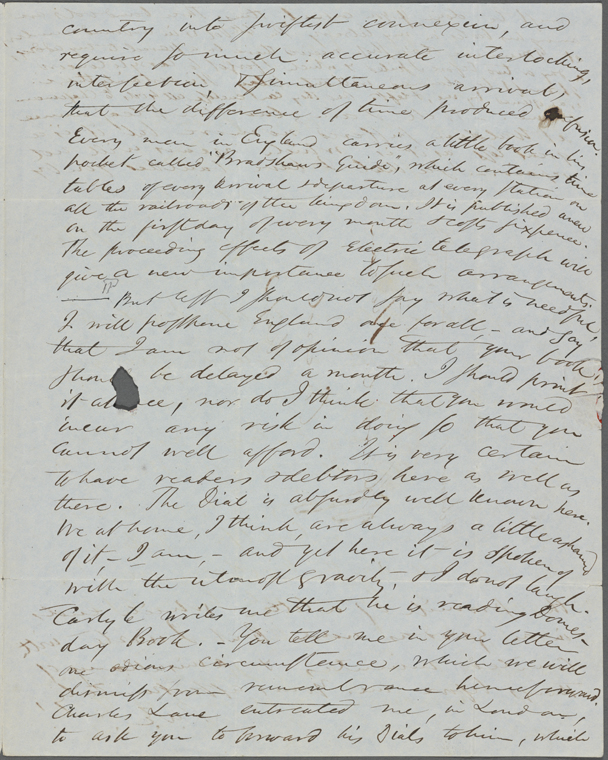 country into swiftest connexion, and
require so much accurate interlocking,
intersection, & simultaneous arrival,
that the difference of time produced confusion.
Every man in England carries a little book in his
pocket called "Bradshaws Guide", which contains time
tables of every arrival & departure at every station on
all the railroads of the kingdom. It is published anew
on the first day of every month & costs sixpence.
The proceeding effects of Electric telegraph will
give a new importance to such arrangements.
But lest I should not say what is needful,
I will postpone England once for all – and say
that I am not of opinion that your book
should be delayed a month. I should print
it at once, nor do I think that you would
incur any risk in doing so that you
cannot well afford. It is very certain
to have readers & debtors here as well as
there. The Dial is absurdly well known here.
We at home, I think, are always a little ashamed
of it, – I am, – and yet here it is spoken of
with the utmost gravity, & I do not laugh.
Carlyle writes me that he is reading Domes-
day Book. – You tell me in your letter
one odious circumstance, which we will
dismiss from remembrance henceforward.
Charles Lane entreated me, in London,
to ask you to forward his Dials to him, which